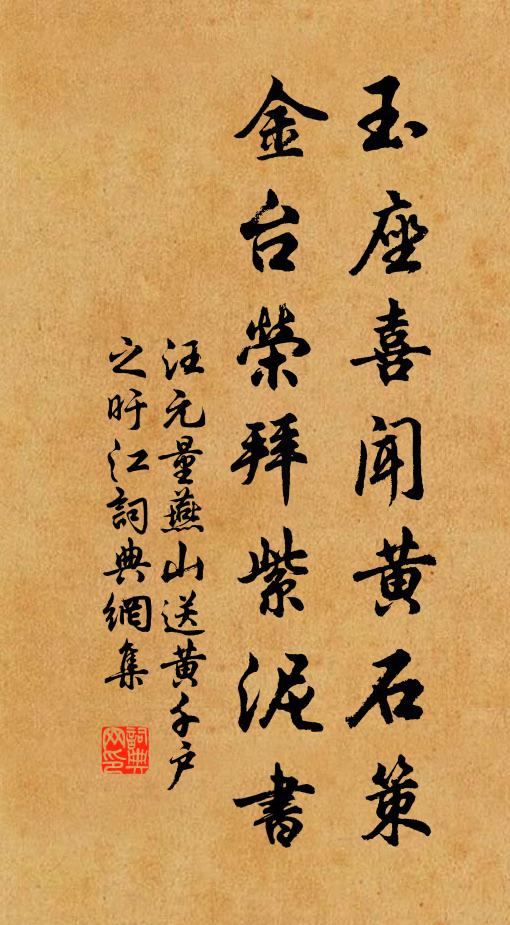 玉座喜闻黄石策
金台榮拜紫泥書
汪元量燕山送黄千户
之盱江詞典網集
詞典网印